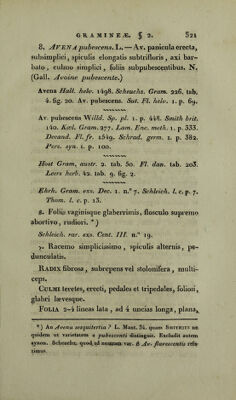 GRAMINEÆ. § 2. 321
8. AVENA pubescens. L. — Av. panicula erecta,
subsimplici, spiculis elongatis subtrifloris, axi bar-
bato, culmo simplici, foliis subpubescentibus. N.
(Gall. Avoine pubescente.)
Avena Hall. helv. 1498. Scheuchz. Gram. 226. tab.
4. fig. 20. Av. pubescens. Sut. Fl. helv. 1. p. 69.
Av. pubescens Willd. Sp. pl. 1. p. 448. Smith brit.
140. Kœl. Gram. 277. Lam. Enc. meth. 1. p. 333.
Decand. Fl. fr. 1549. Schrad. germ. 1. p. 382.
Pers. syn. 1. p. 100.
Host Gram. austr. 2. tab. 50. Fl. dan. tab. 203.
Leers herb. 42. tab. 9. fig. 2.
Ehrh. Gram. exs. Dec. 1. n.° 7. Schleich. l. c. p. 7.
Thom. l. c. p. 13.
β. Foliis vaginisque glaberrimis, flosculo supremo
abortivo, rudiori. *)
Schleich. rar. exs. Cent. III. n.° 19.
γ. Racemo simplicissimo, spiculis alternis, pe-
dunculatis.
RADIX fibrosa, subrepens vel stolonifera, multi-
ceps.
CULMI teretes, erecti, pedales et tripedales, foliosi,
glabri lævesque.
FOLIA 2-4 lineas lata, ad 4 uncias longa, plana,
*) An Avena sesquitertia? L. Mant. 34. quam SMITHIUS ne
quidem ut varietatem a pubescenti distinguit. Excludit autem
synon. Scheuchz. quod ad nostram var. β Av. flavescentis refe-
rimus.